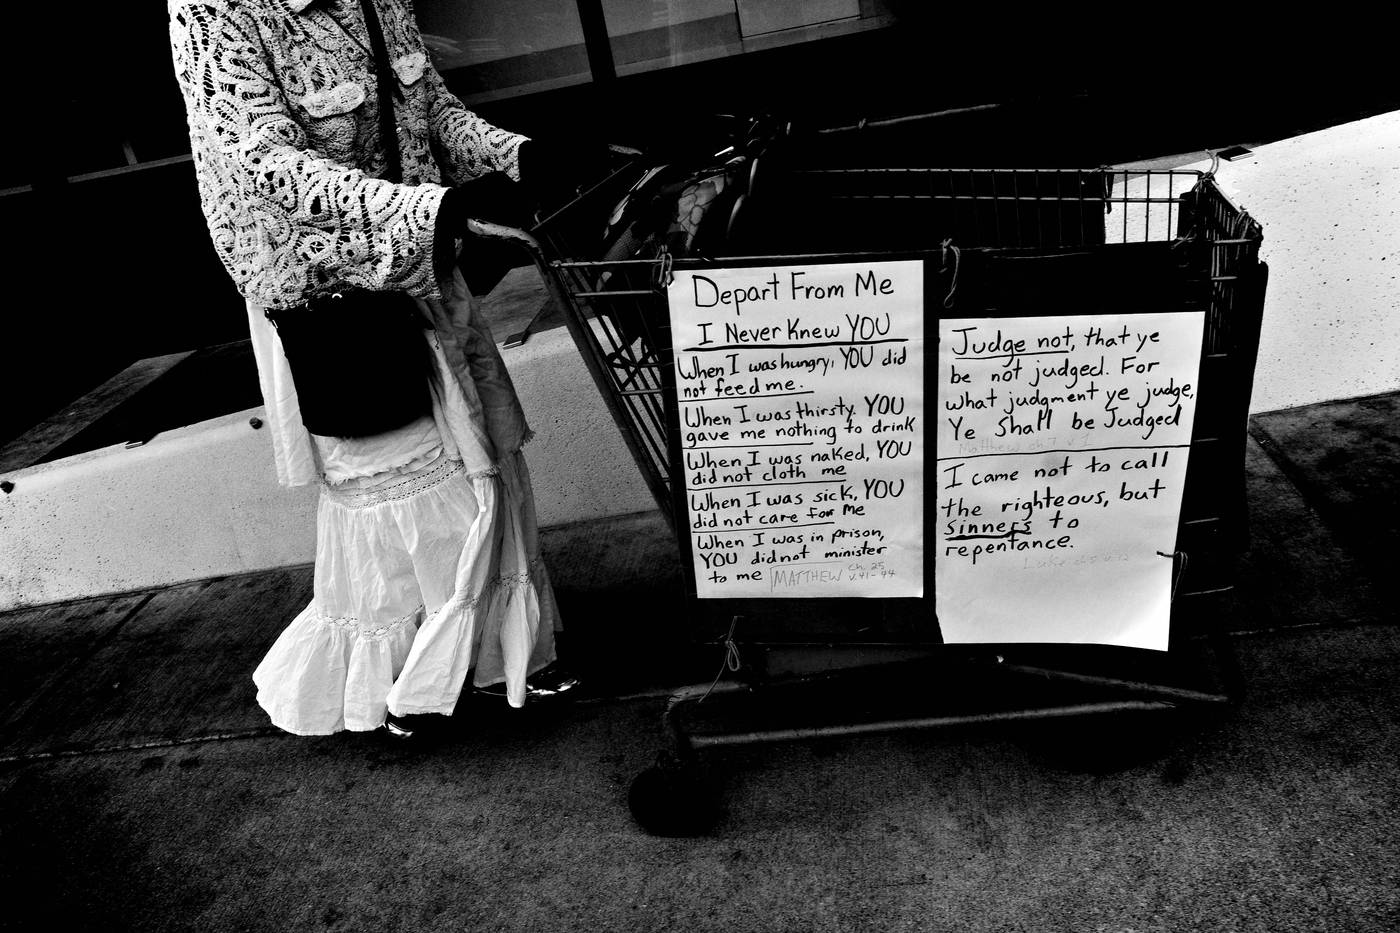 Depart From Me
I Never Knew YOU
When I was hungry, YOU did
not feed me.
When I was thirsty YOU
gave me nothing to drink
When I was naked, YOU
did not cloth me
When I was sick, YOU
did not care for me
When I was in prison,
YOU did not minister
to me MATTHEW ch. 25
v. 41-44
Judge not, that ye
be not judged. For
what judgment ye judge,
Ye shall be Judged
Matthew ch 7 v 1
I came not to call
the righteous, but
sinners to
repentance.
Luke ch 5 v.